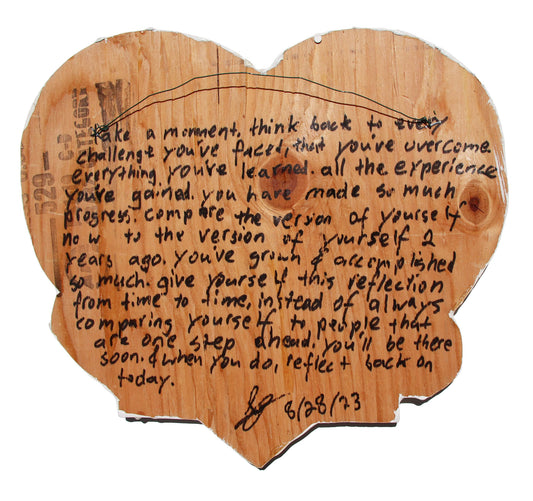 take a moment, think back to every
challenge you've faced, that you've overcome.
everything you've learned. all the experience
you've gained. you have made so much
progress. compare the version of yourself
now to the version of yourself 2
years ago. you've grown & accomplished
so much. give yourself this reflection
from time to time, instead of always
comparing yourself to people that
are one step ahead. you'll be there
soon. & when you do, reflect back on
today.
8/28/23
529-